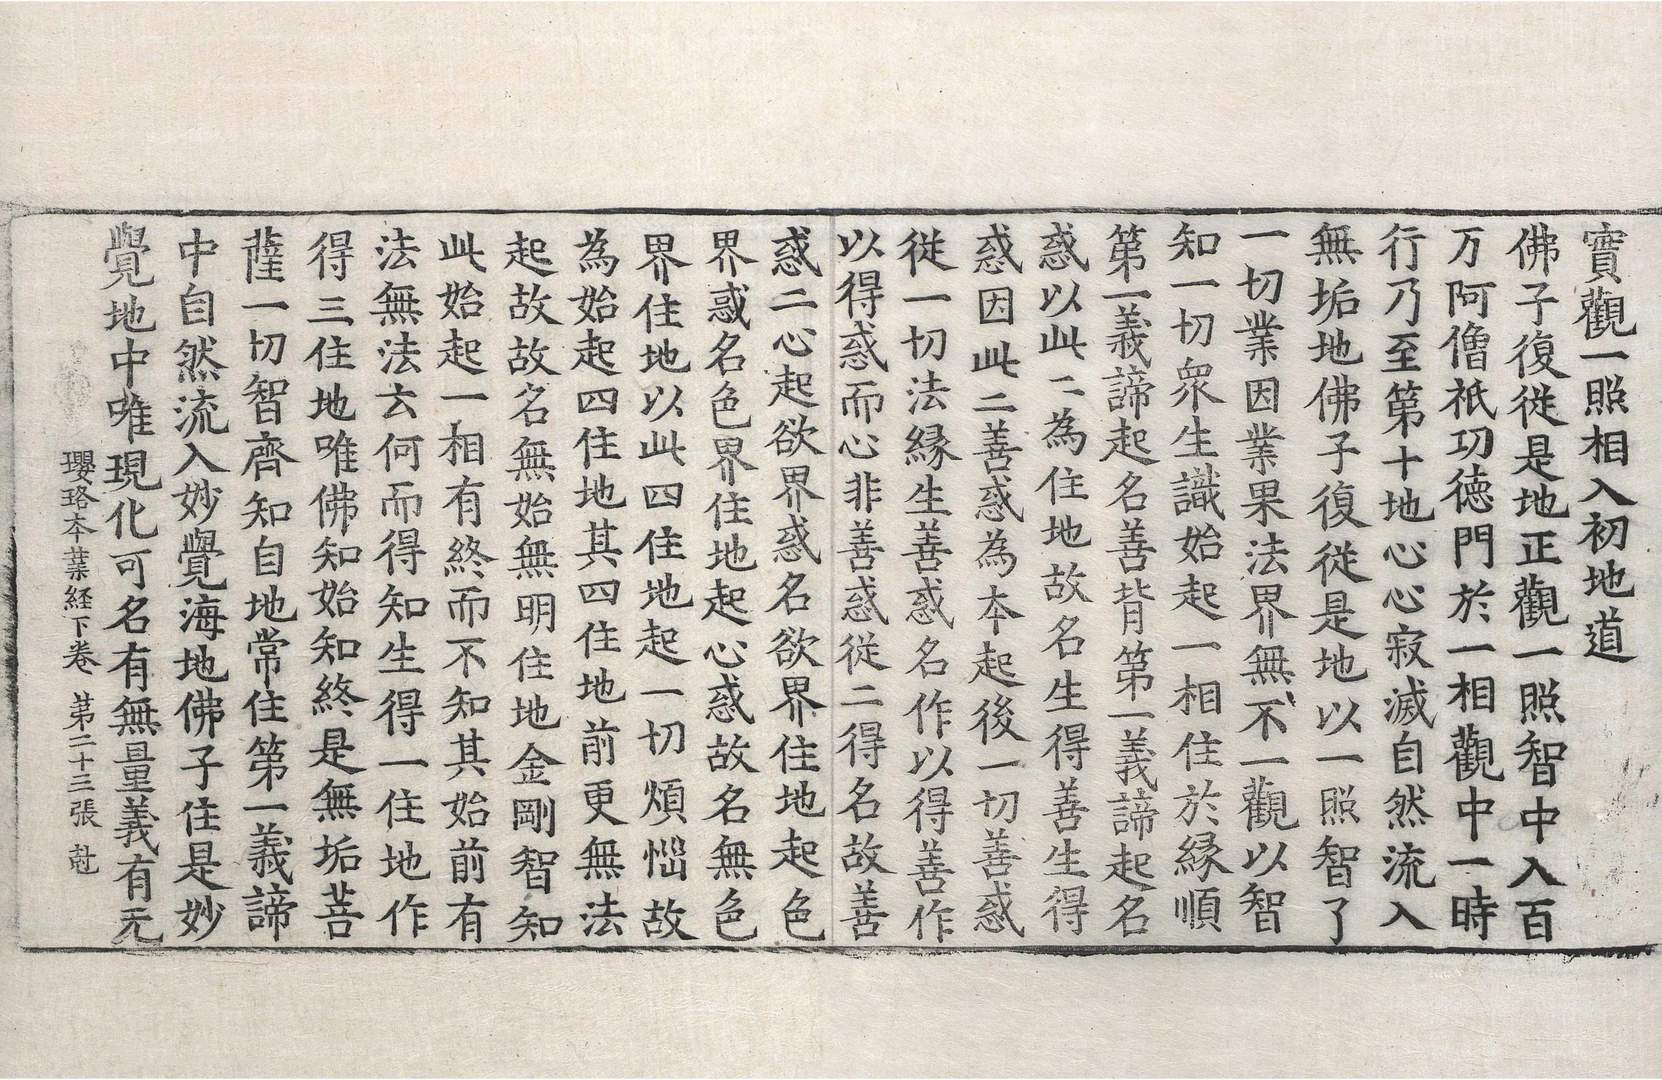 實觀一照相入初地道
佛子復從是地正觀一照智中入百
万阿僧祇功德門於一相觀中一時
行乃至第十地心心寂滅自然流入
無垢地佛子復從是地以一照智了
一切業因業果法界無不一觀以智
知一切衆生識始起一相住於緣順
第一義諦起名善背第一義諦起名
惑以此二為住地故名生得善生得
惑因此二善惑為本起後一切善惑
從一切法緣生善惑名作以得善作
以得惑而心非善惑從二得名故善
惑二心起欲界惑名欲界住地起色
界惑名色界住地起心惑故名無色
界住地以此四住地起一切煩惱故
為始起四住地其四住地前更無法
起故故名無始無明住地金剛智知
此始起一相有終而不知其始前有
法無法云何而得知生得一住地作
得三住地唯佛知始知終是無垢菩
薩一切智齊知自地常住第一義諦
中自然流入妙覺海地佛子住是妙
覺地中唯現化可名有無量義有无
瓔珞本業経下卷 苐二十三張 尅